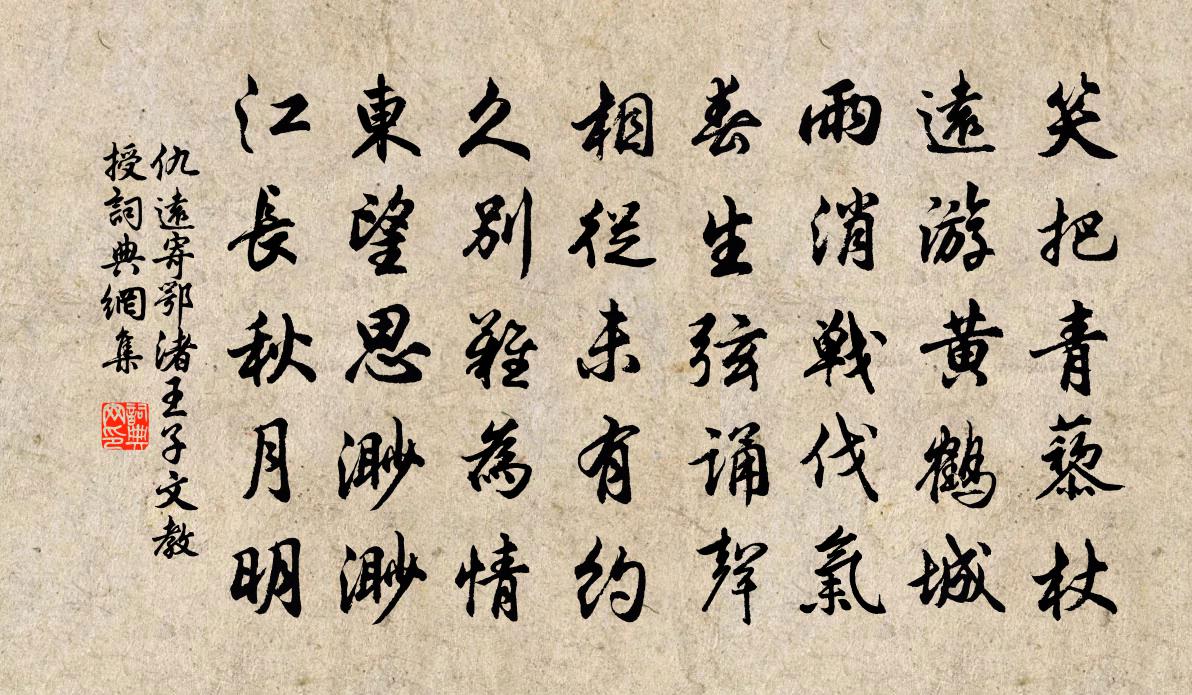 笑把青藜杖
遠游黃鶴城
雨消戰伐氣
春生弦誦聲
相從未有約
久別難為情
東望思渺渺
江長秋月明
仇遠寄鄂渚王子文教
授詞典網集
詞典网印